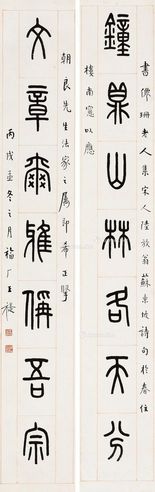 書僊珊老人集宋人陸放翁蘇東坡詩句於春住
鐘鼎山林各天分
樓南窻以應
朝良先生法家之屬即希正掔
文章爾雅稱吾宗
丙戌孟冬之月福厂王禔